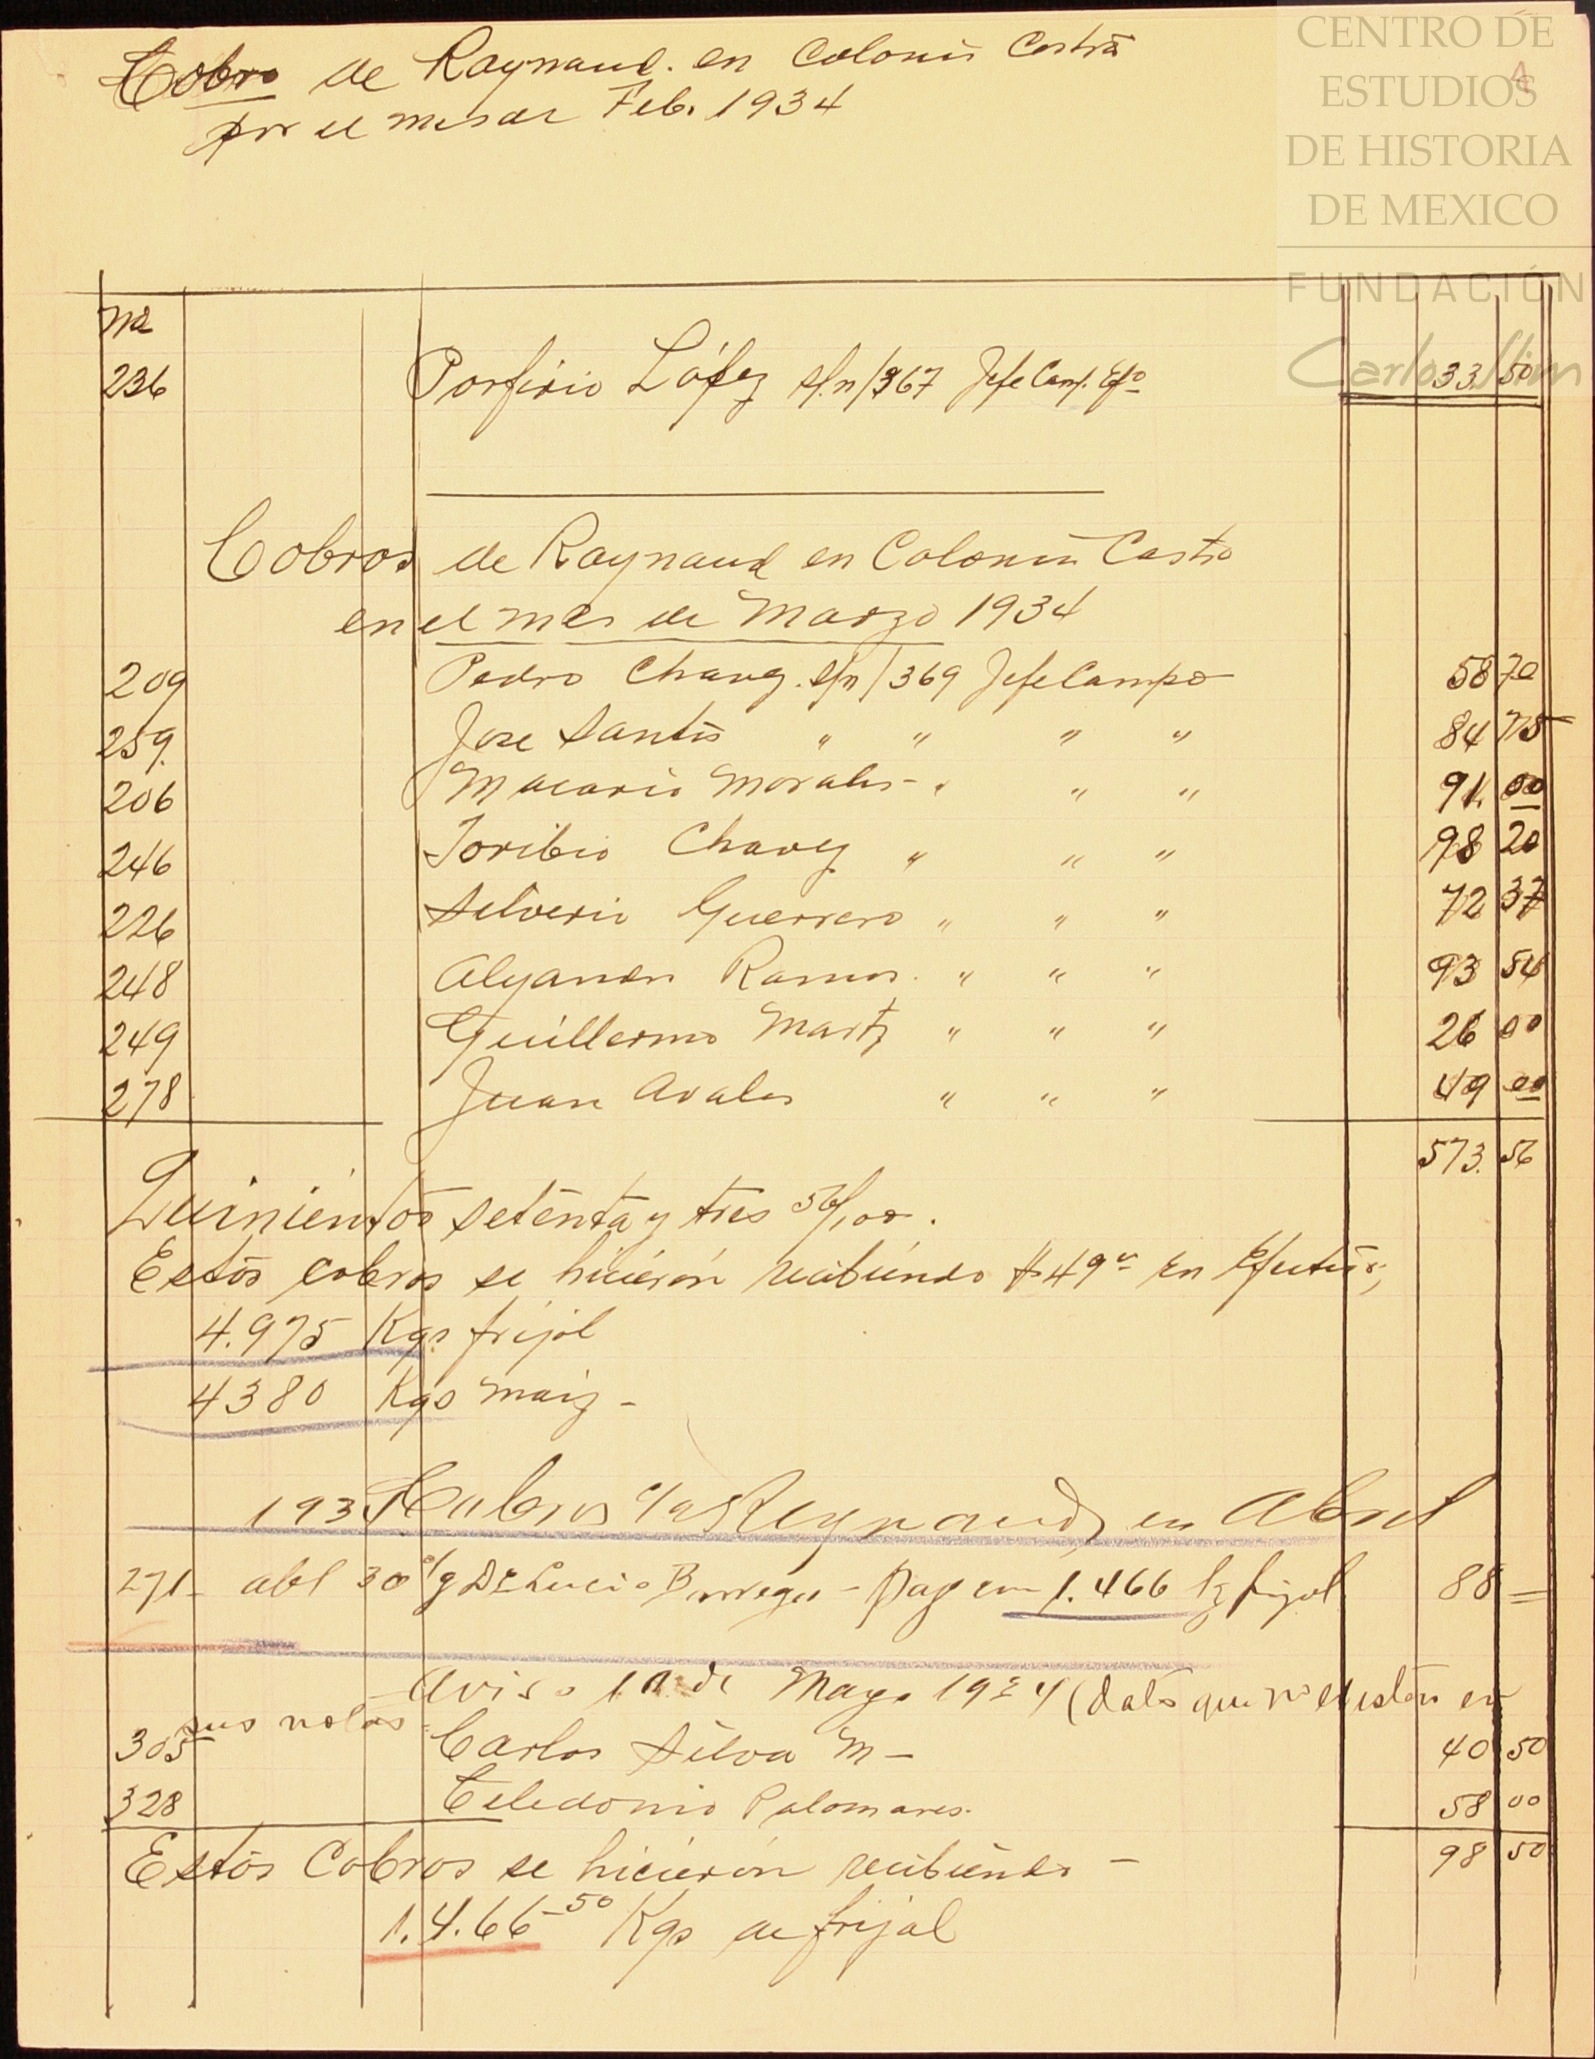 Cobro de Raynaud. en Colonia Castro
por el mes de Feb. 1934
CENTRO DE
ESTUDIOS
DE HISTORIA
DE MEXICO
FUNDACIÓN
Carlos Slim
No
236 Porfirio López s/n/367 Jefe Camp. 33.50
Cobros de Raynaud en Colonia Castro
en el mes de Marzo 1934
209 Pedro Chavez. s/n/369 Jefe Campo 58 70
259. Jose Santos " " " " 84 75
206 Macario Morales - " " " 91. 00
246 Toribio Chavez " " " 98 20
226 Silverio Guerrero " " " 72 37
248 Alejandro Ramos. " " " 93 54
249 Guillermo Martz " " " 26 00
278 Juan Avalos " " " 49 00
573. 56
Quinientos setenta y tres 56/100.
Estos cobros se hicieron recibiendo $49 en efectivo,
4.975 Kgs. frijol
4380 Kgs maiz -
1934 Cobros Reynaud, en Abril
271- abl 30 Lucio - pag con 1.466 kg frijol 88 =
Aviso de Mayo 1934 (datos que no existen en
sus notas
305 Carlos Silva M - 40 50
328 Celedonio Palomares. 58 00
98 50
Estos Cobros se hicieron recibiendo -
1.4.66-50 Kgs de frijol